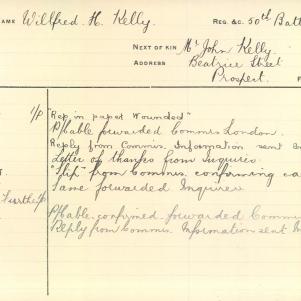 NAME Wilfred H. Kelly. REG. &C. 50th Batt
NEXT OF KIN Mr John Kelly.
ADDRESS Beatrice Street
Prospect.
1/P "Rep in paper Wounded"
P/Cable forwarded Commis London.
Reply from Commis. Information sent En
Letter of thanks from Enquirer.
"Slip" from Commis. confirming ca
Same forwarded Enquirer
P/Cable confirmed forwarded Commis
Reply from Commis Information sent